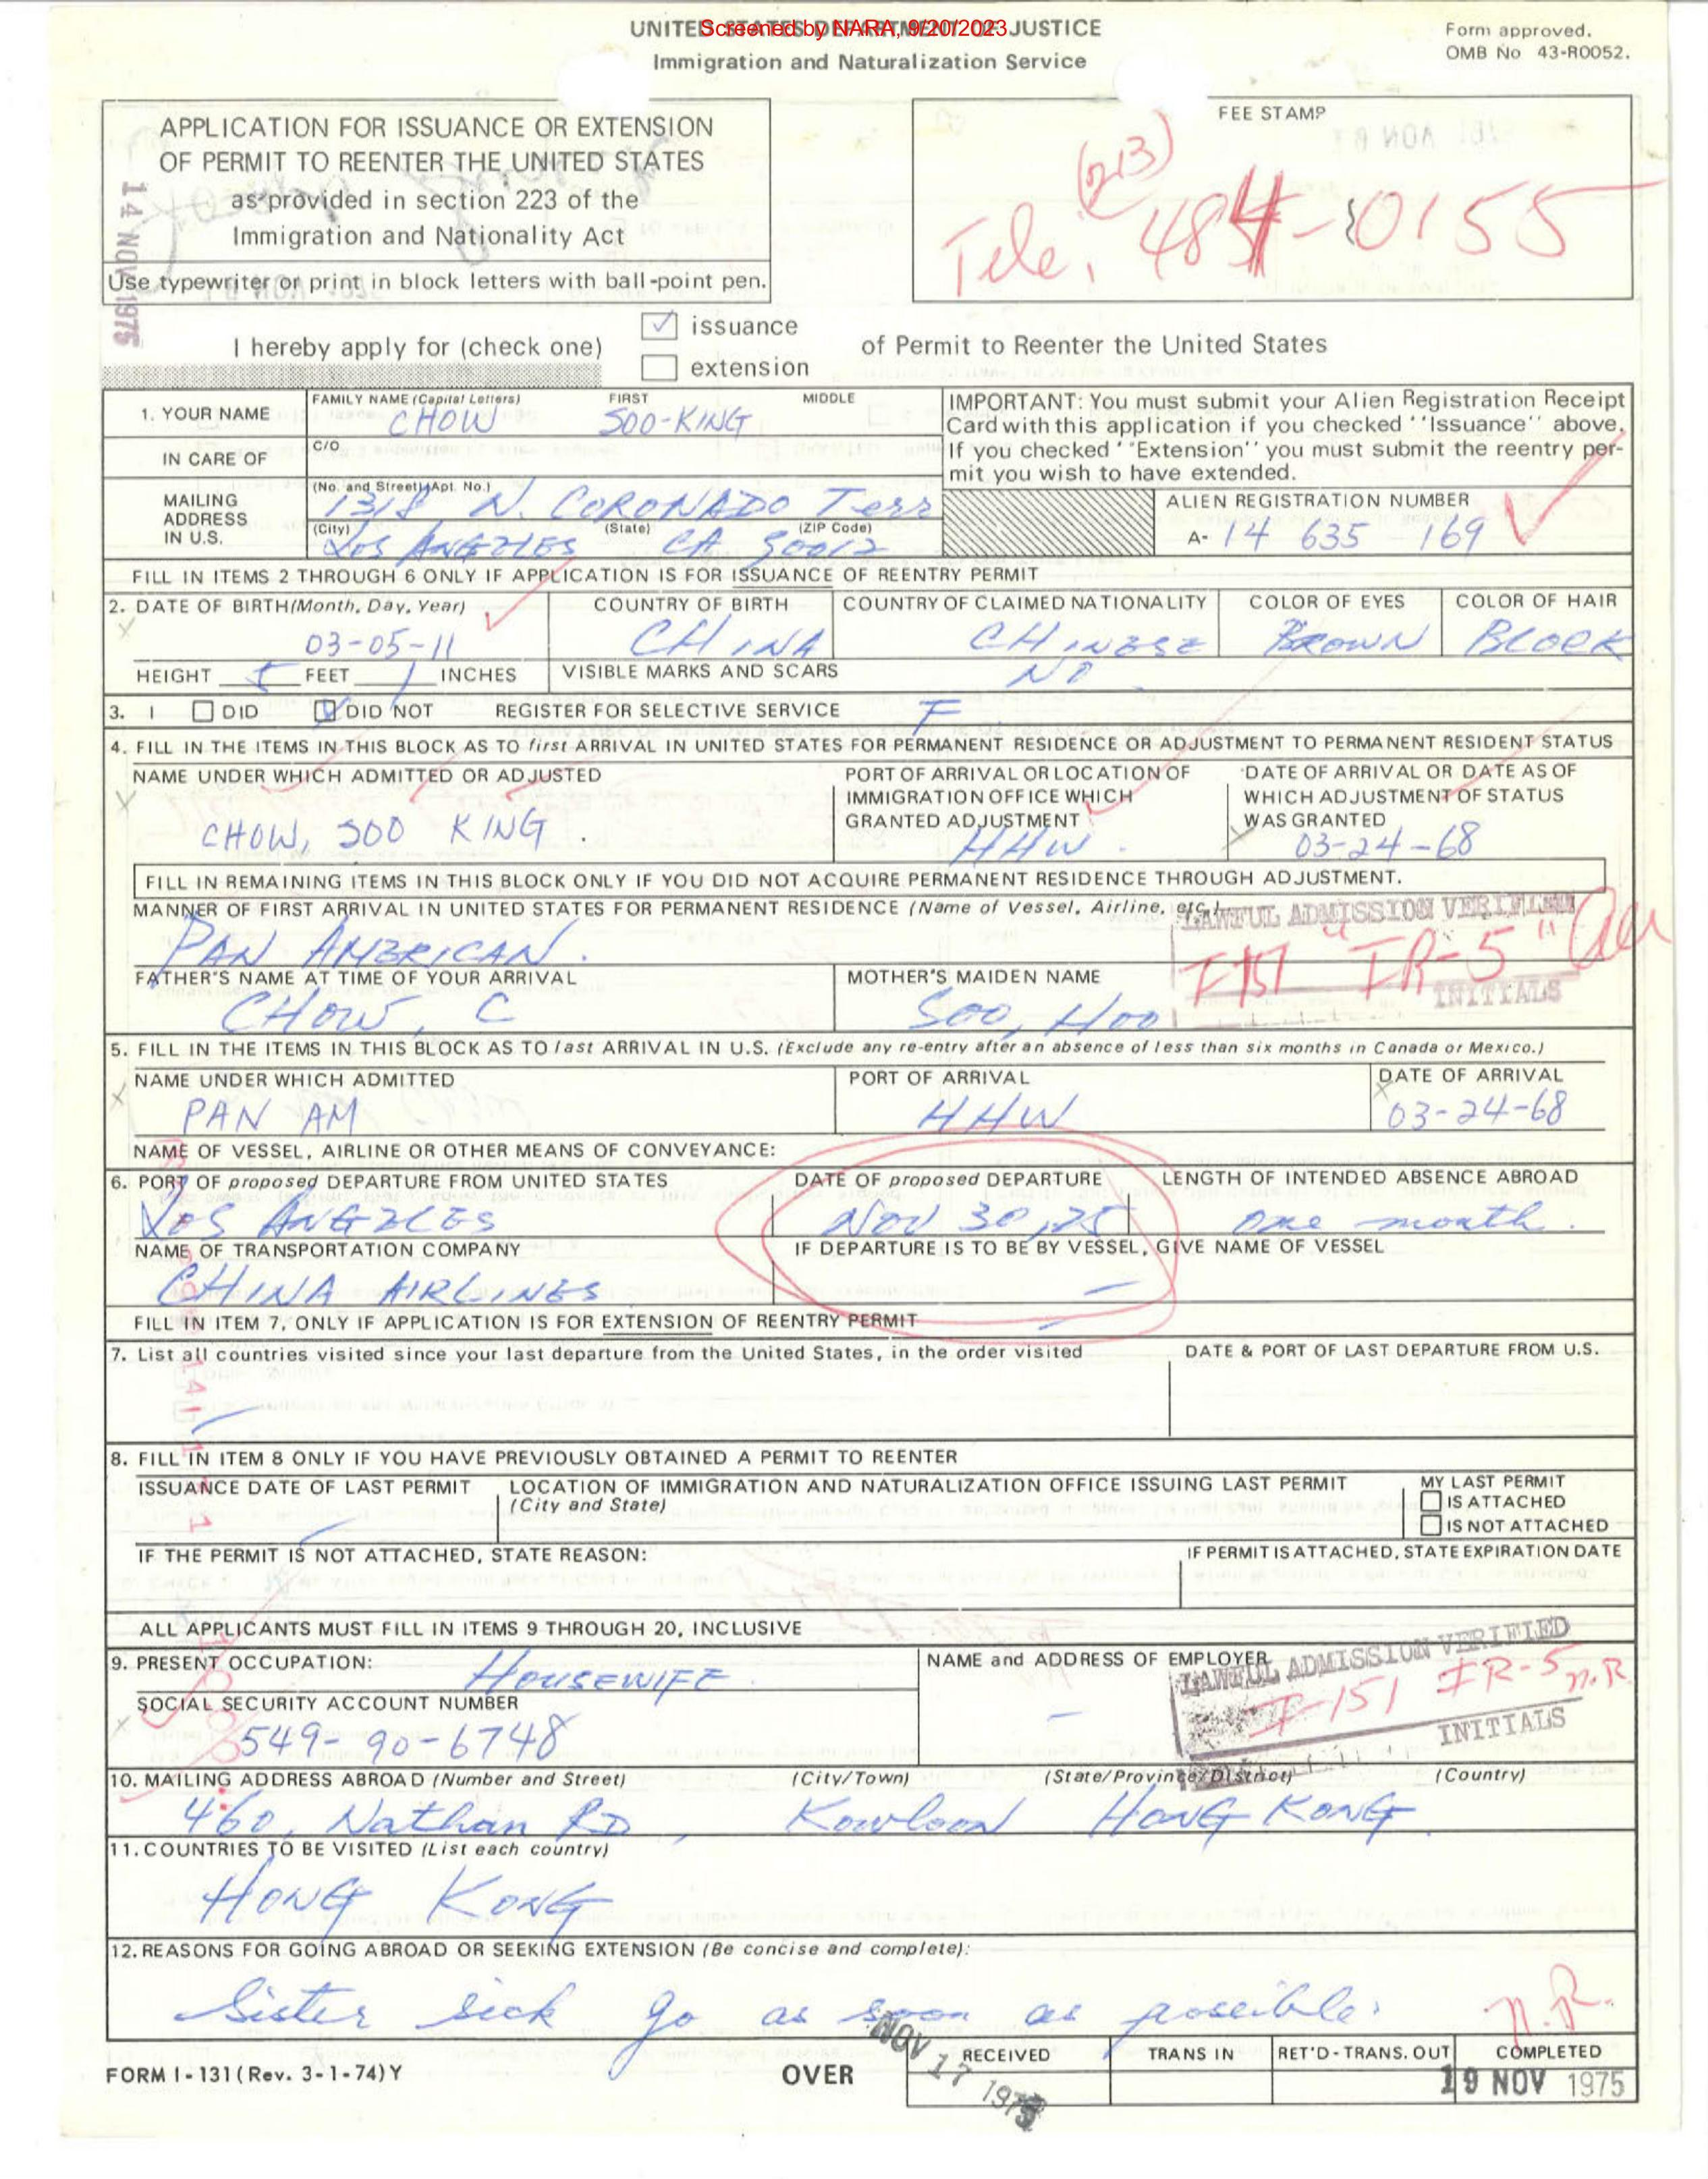 UNITED STATES DEPARTMENT OF JUSTICE
Screened by NARA, 9/20/2023
Immigration and Naturalization Service
Form approved.
OMB No 43-R0052.
APPLICATION FOR ISSUANCE OR EXTENSION
OF PERMIT TO REENTER THE UNITED STATES
as provided in section 223 of the
Immigration and Nationality Act
Use typewriter or print in block letters with ball-point pen.
14 NOV 1975
FEE STAMP
(213)
Tele. 484-0155
I hereby apply for (check one)
issuance
extension
of Permit to Reenter the United States
1. YOUR NAME
FAMILY NAME (Capital Letters) FIRST MIDDLE
CHOW SOO-KING
IN CARE OF
C/O
IMPORTANT: You must submit your Alien Registration Receipt
Card with this application if you checked ''Issuance'' above.
If you checked ''Extension'' you must submit the reentry per-
mit you wish to have extended.
MAILING
ADDRESS
IN U.S.
(No. and Street)(Apt. No.)
1318 N. CORONADO Terr
(City) (State) (ZIP Code)
LOS ANGELES CA 90012
ALIEN REGISTRATION NUMBER
A- 14 635 169
FILL IN ITEMS 2 THROUGH 6 ONLY IF APPLICATION IS FOR ISSUANCE OF REENTRY PERMIT
2. DATE OF BIRTH (Month, Day, Year) COUNTRY OF BIRTH COUNTRY OF CLAIMED NATIONALITY COLOR OF EYES COLOR OF HAIR
03-05-11 CHINA CHINESE BROWN BLOCK
HEIGHT 5 FEET 1 INCHES VISIBLE MARKS AND SCARS NO
3. I DID DID NOT REGISTER FOR SELECTIVE SERVICE F
4. FILL IN THE ITEMS IN THIS BLOCK AS TO first ARRIVAL IN UNITED STATES FOR PERMANENT RESIDENCE OR ADJUSTMENT TO PERMANENT RESIDENT STATUS
NAME UNDER WHICH ADMITTED OR ADJUSTED
CHOW, SOO KING.
PORT OF ARRIVAL OR LOCATION OF
IMMIGRATION OFFICE WHICH
GRANTED ADJUSTMENT
HHW.
DATE OF ARRIVAL OR DATE AS OF
WHICH ADJUSTMENT OF STATUS
WAS GRANTED
03-24-68
FILL IN REMAINING ITEMS IN THIS BLOCK ONLY IF YOU DID NOT ACQUIRE PERMANENT RESIDENCE THROUGH ADJUSTMENT.
MANNER OF FIRST ARRIVAL IN UNITED STATES FOR PERMANENT RESIDENCE (Name of Vessel, Airline, etc.)
PAN AMERICAN.
LAWFUL ADMISSION VERIFIED
I-151 "IR-5"
INITIALS
FATHER'S NAME AT TIME OF YOUR ARRIVAL
CHOW, C
MOTHER'S MAIDEN NAME
SOO, HOO
5. FILL IN THE ITEMS IN THIS BLOCK AS TO last ARRIVAL IN U.S. (Exclude any re-entry after an absence of less than six months in Canada or Mexico.)
NAME UNDER WHICH ADMITTED PORT OF ARRIVAL DATE OF ARRIVAL
PAN AM HHW 03-24-68
NAME OF VESSEL, AIRLINE OR OTHER MEANS OF CONVEYANCE:
6. PORT OF proposed DEPARTURE FROM UNITED STATES DATE OF proposed DEPARTURE LENGTH OF INTENDED ABSENCE ABROAD
LOS ANGELES Nov 30, 75 one month.
NAME OF TRANSPORTATION COMPANY IF DEPARTURE IS TO BE BY VESSEL, GIVE NAME OF VESSEL
CHINA AIRLINES —
FILL IN ITEM 7, ONLY IF APPLICATION IS FOR EXTENSION OF REENTRY PERMIT
7. List all countries visited since your last departure from the United States, in the order visited DATE & PORT OF LAST DEPARTURE FROM U.S.
8. FILL IN ITEM 8 ONLY IF YOU HAVE PREVIOUSLY OBTAINED A PERMIT TO REENTER
ISSUANCE DATE OF LAST PERMIT LOCATION OF IMMIGRATION AND NATURALIZATION OFFICE ISSUING LAST PERMIT
(City and State)
MY LAST PERMIT
IS ATTACHED
IS NOT ATTACHED
IF THE PERMIT IS NOT ATTACHED, STATE REASON: IF PERMIT IS ATTACHED, STATE EXPIRATION DATE
ALL APPLICANTS MUST FILL IN ITEMS 9 THROUGH 20, INCLUSIVE
9. PRESENT OCCUPATION: HOUSEWIFE
NAME and ADDRESS OF EMPLOYER
—
LAWFUL ADMISSION VERIFIED
I-151 IR-5 n.R.
INITIALS
SOCIAL SECURITY ACCOUNT NUMBER
549-90-6748
10. MAILING ADDRESS ABROAD (Number and Street) (City/Town) (State/Province/District) (Country)
460, Nathan RD, Kowloon HONG KONG
11. COUNTRIES TO BE VISITED (List each country)
HONG KONG
12. REASONS FOR GOING ABROAD OR SEEKING EXTENSION (Be concise and complete):
Sister sick go as soon as possible.
n.R.
NOV 17 1975
RECEIVED TRANS IN RET'D-TRANS. OUT COMPLETED
19 NOV 1975
FORM I-131 (Rev. 3-1-74) Y
OVER